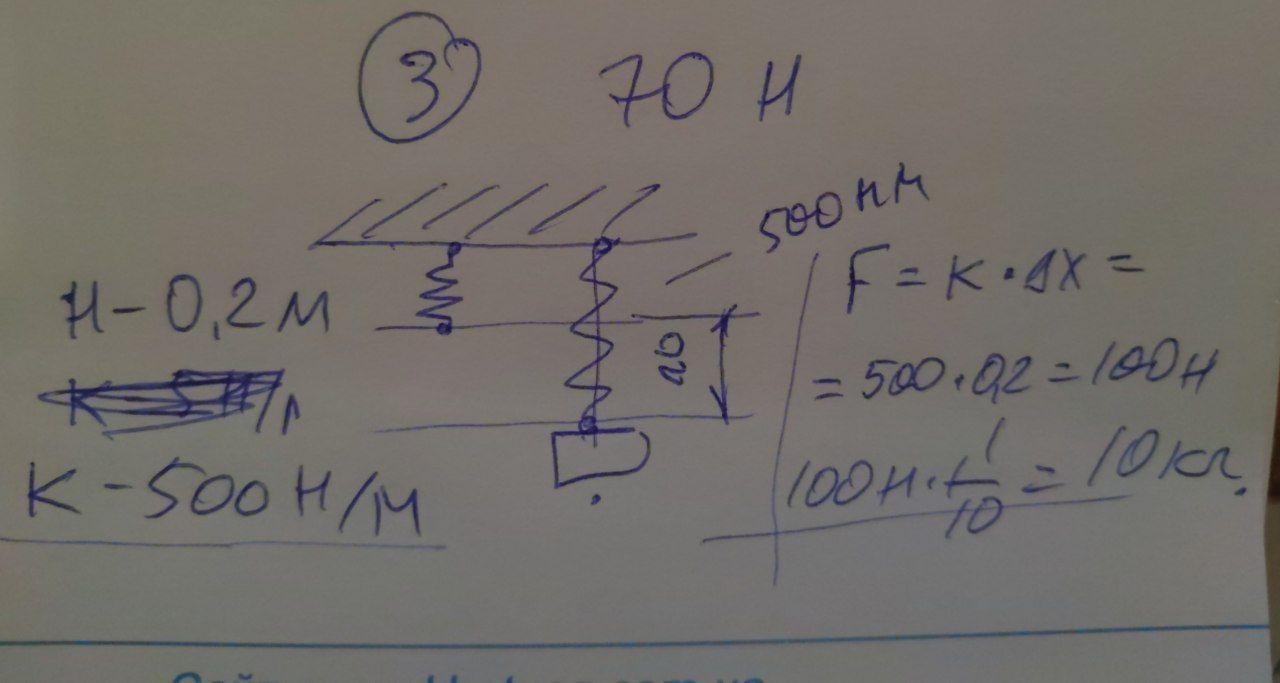 3 70 Н
500 нм
Н - 0,2 м
К - 500 Н/м
20
F = к · Δх =
= 500 · 0,2 = 100 н
100 н · 1/10 = 10 кг.